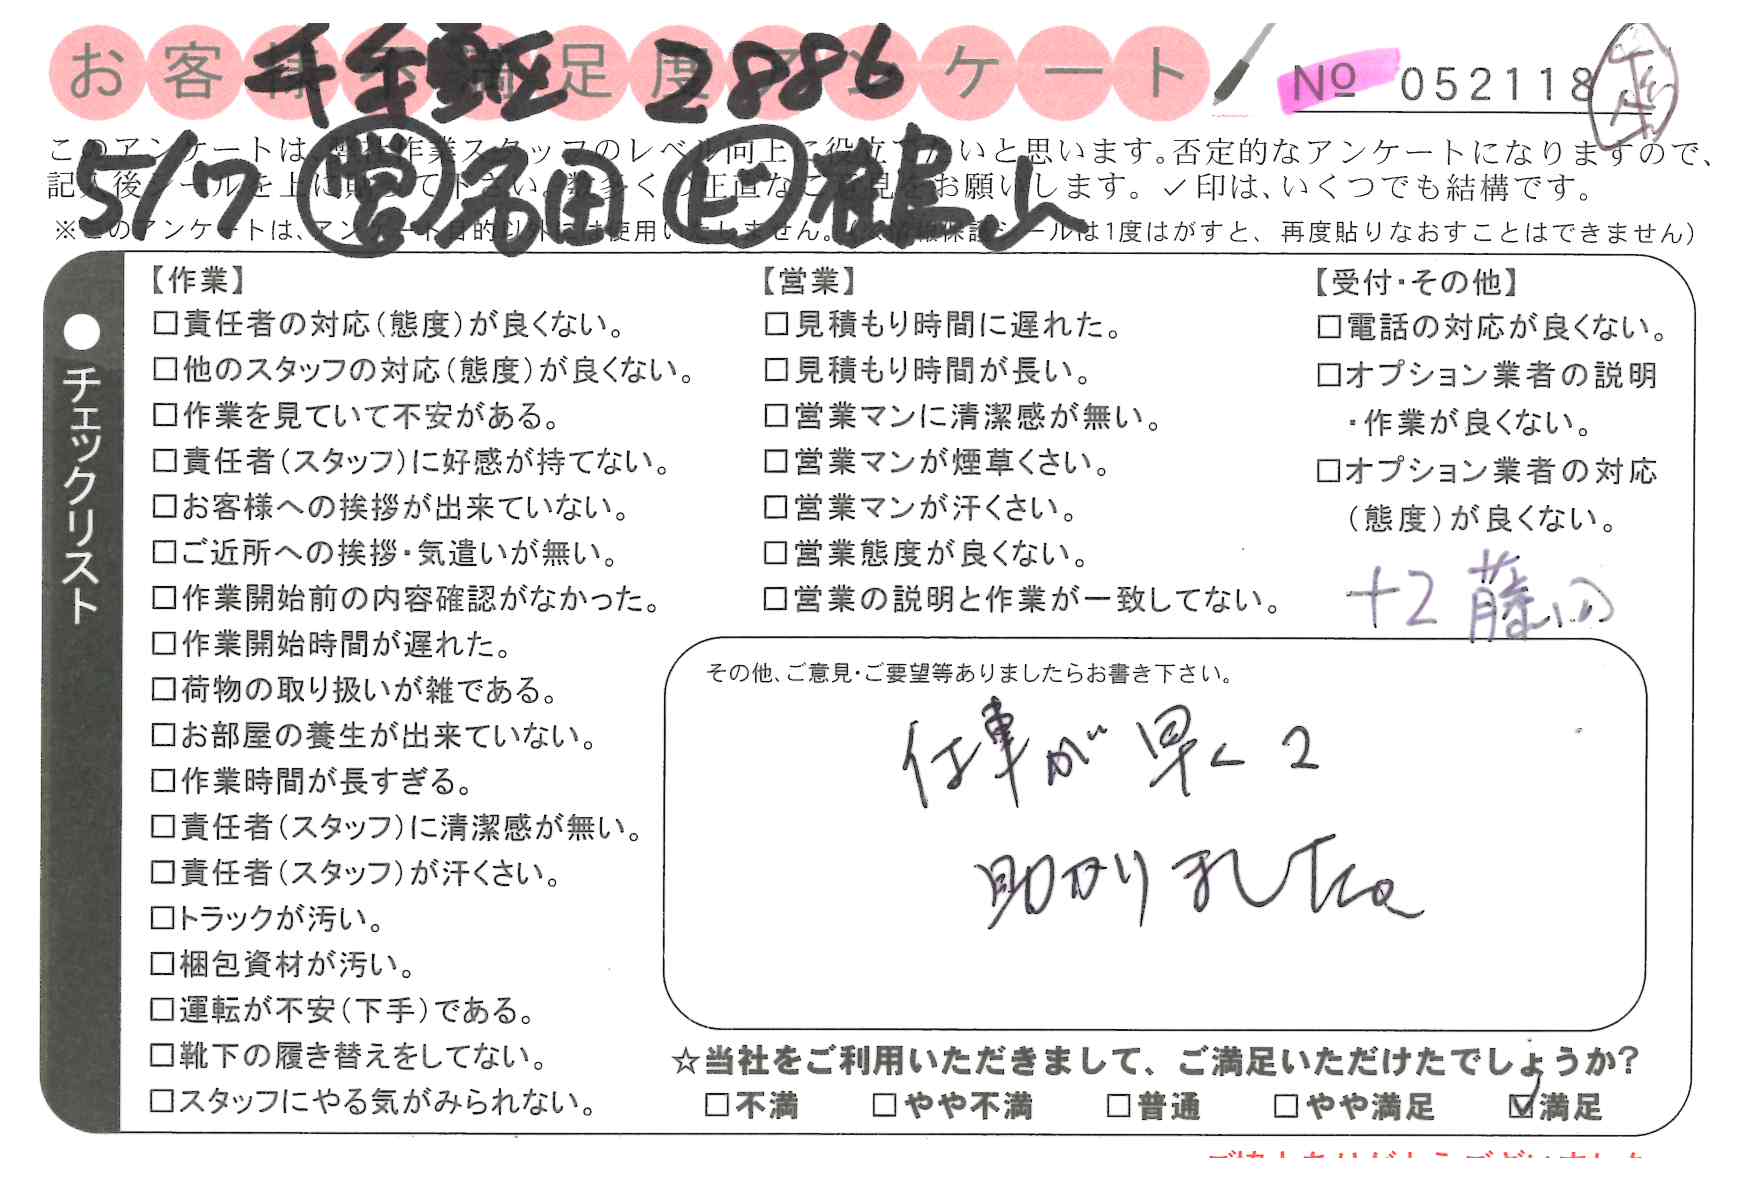 お客様不満足度アンケート No 052118
千金整区 2886
このアンケートは、弊社作業スタッフのレベル向上に役立てたいと思います。否定的なアンケートになりますので、
記入後シールを上に貼って下さい。数多くの正直なご意見をお願いします。✓印は、いくつでも結構です。
5/7 営 名田 ヒ 梶山
※このアンケートは、アンケート目的以外には使用いたしません。(個人情報保護シールは1度はがすと、再度貼りなおすことはできません)
●チェックリスト
【作業】
□責任者の対応(態度)が良くない。
□他のスタッフの対応(態度)が良くない。
□作業を見ていて不安がある。
□責任者(スタッフ)に好感が持てない。
□お客様への挨拶が出来ていない。
□ご近所への挨拶・気遣いが無い。
□作業開始前の内容確認がなかった。
□作業開始時間が遅れた。
□荷物の取り扱いが雑である。
□お部屋の養生が出来ていない。
□作業時間が長すぎる。
□責任者(スタッフ)に清潔感が無い。
□責任者(スタッフ)が汗くさい。
□トラックが汚い。
□梱包資材が汚い。
□運転が不安(下手)である。
□靴下の履き替えをしてない。
□スタッフにやる気がみられない。
【営業】
□見積もり時間に遅れた。
□見積もり時間が長い。
□営業マンに清潔感が無い。
□営業マンが煙草くさい。
□営業マンが汗くさい。
□営業態度が良くない。
□営業の説明と作業が一致してない。
【受付・その他】
□電話の対応が良くない。
□オプション業者の説明
・作業が良くない。
□オプション業者の対応
(態度)が良くない。
+2 藤田
その他、ご意見・ご要望等ありましたらお書き下さい。
仕事が早くて
助かりました。
☆当社をご利用いただきまして、ご満足いただけたでしょうか?
□不満 □やや不満 □普通 □やや満足 ☑満足
ご協力ありがとうございました